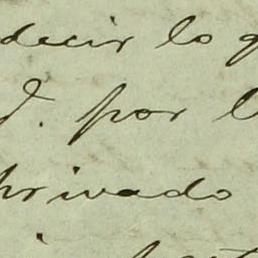 decir lo q
d. por l
privado